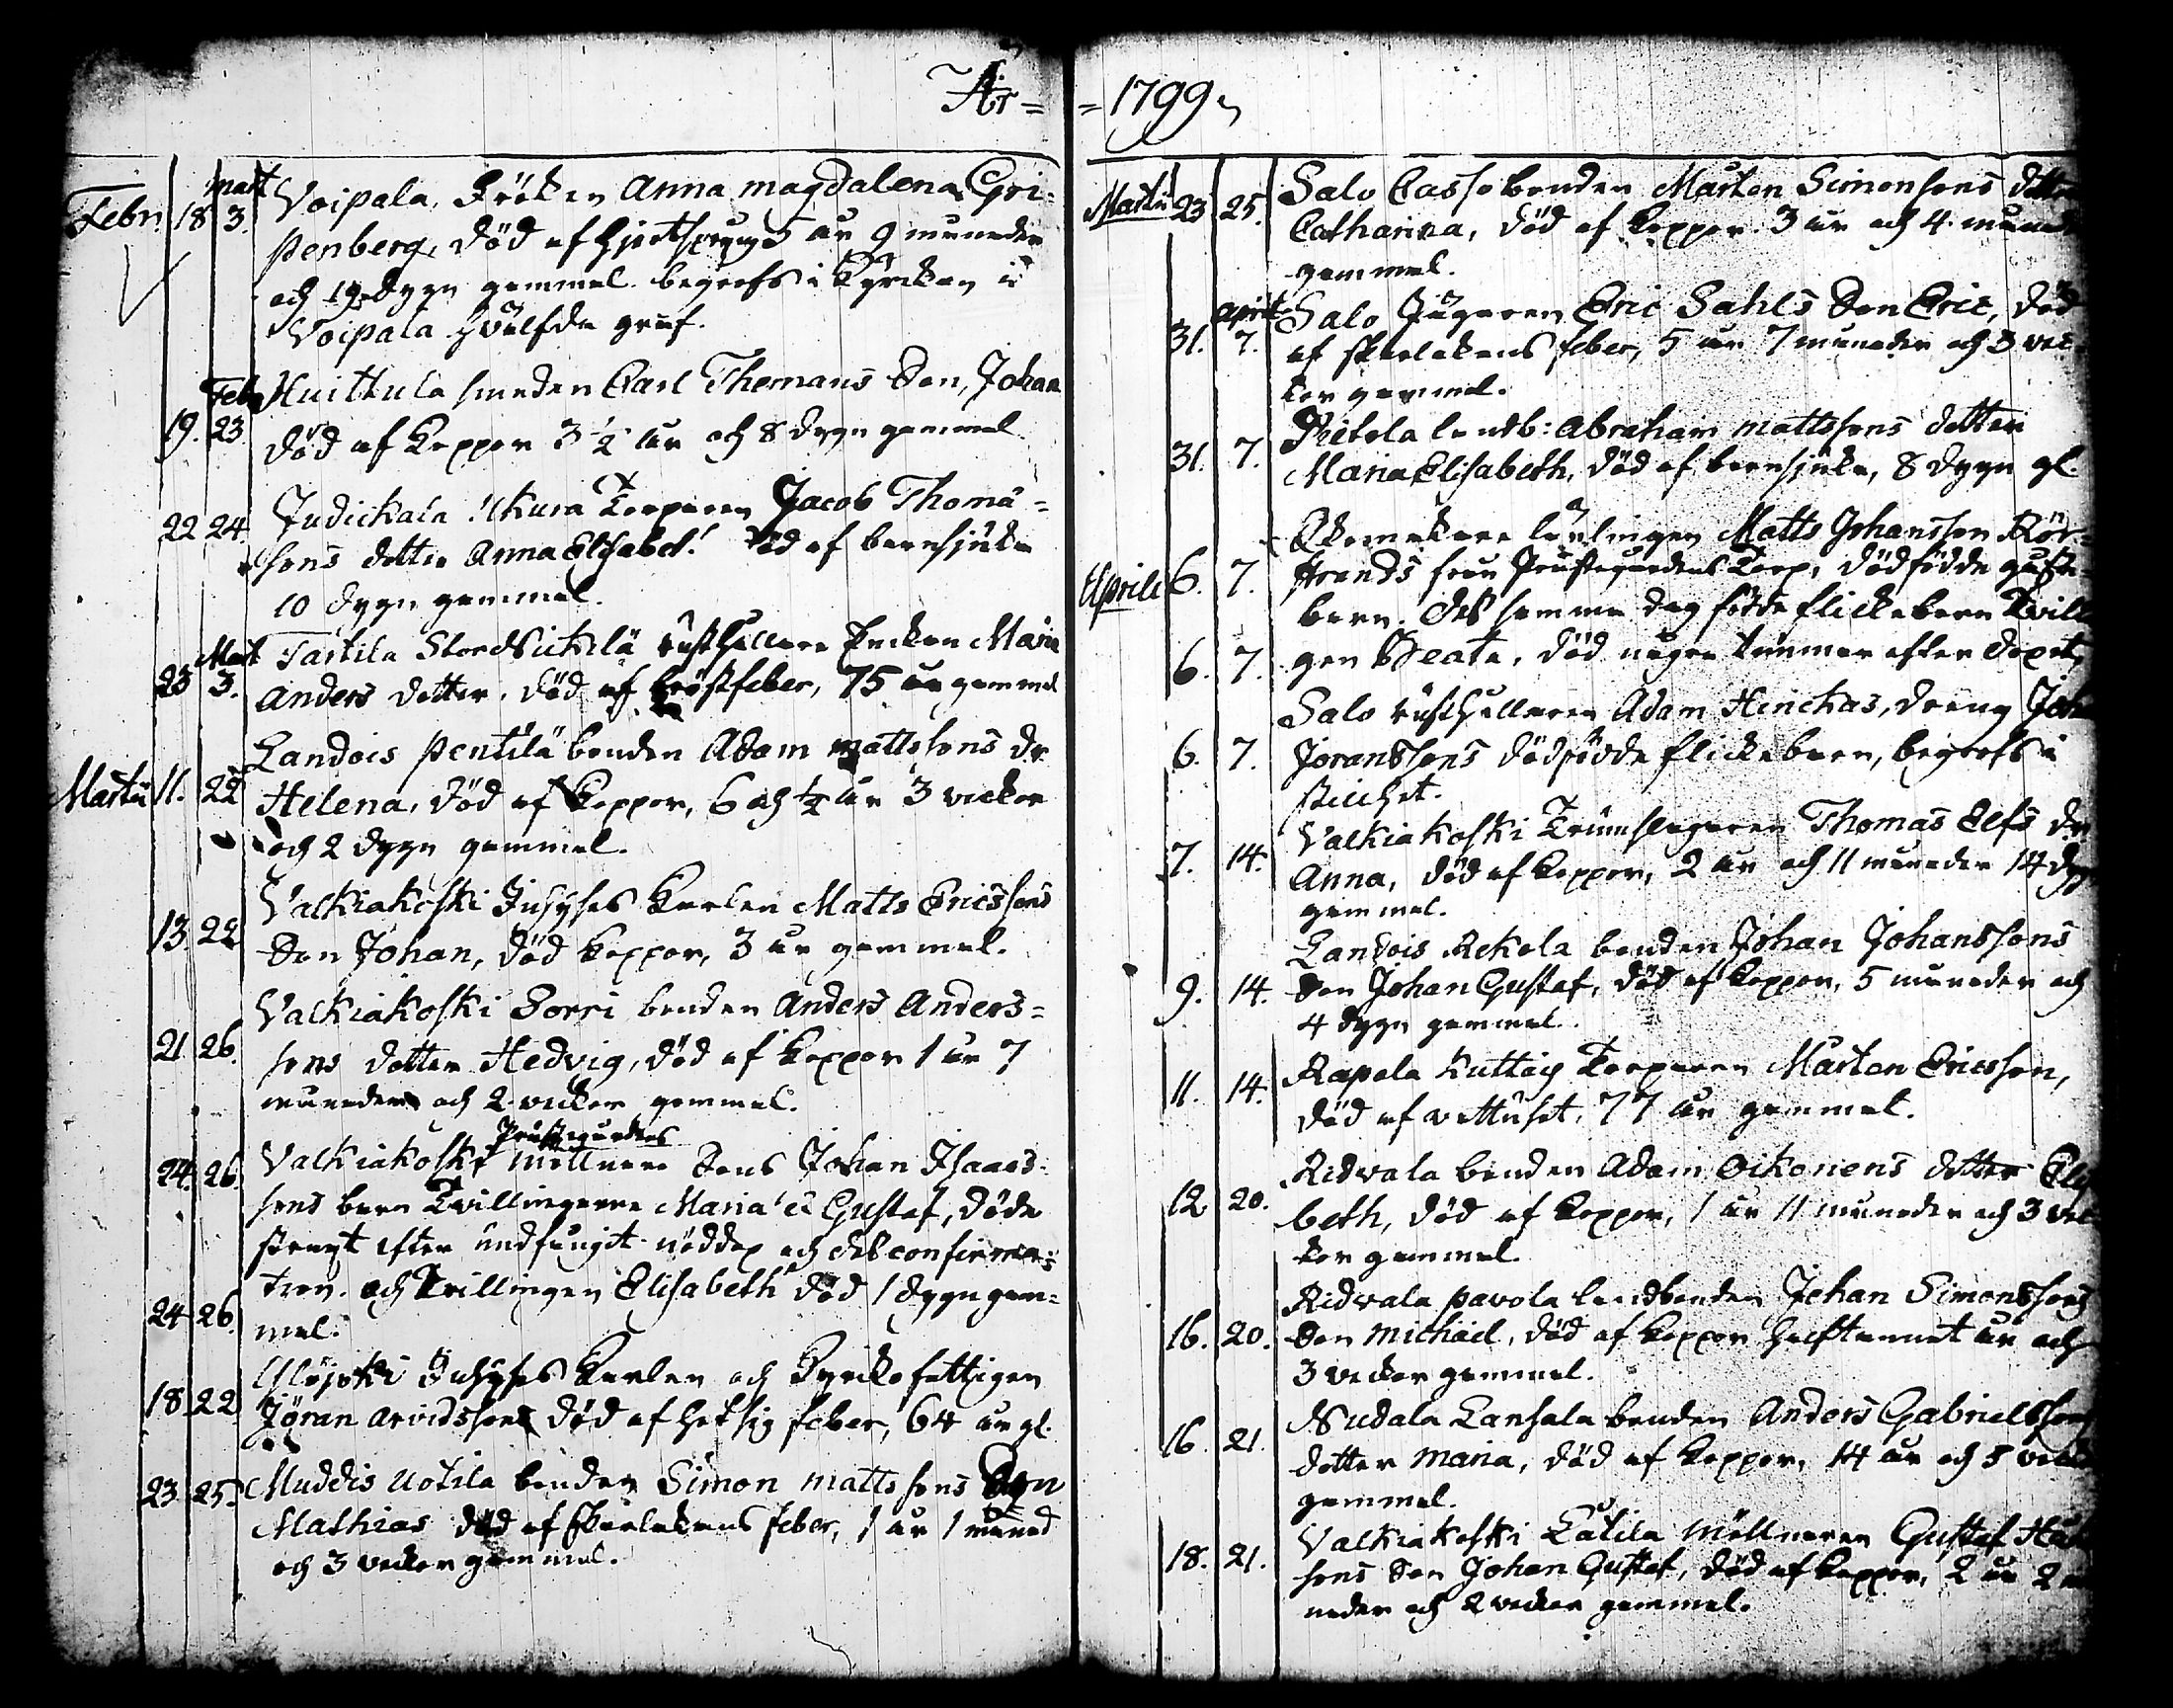 År = = 1799
Febr. 18 Mart 3. Voipala, Fröken Anna Magdalena Gri-
penberg, död af 5 år 9 månader
och 19 dygn gammal. begrofs i Kyrckan i
Voipala hvälfda graf.
19. Feb 23 Huittula smeden Carl Thomans Son, Johan
död af koppor 3 1/2 år och 8 dygn gammal.
22 24 Judickala Torparen Jacob Thomas-
sons dotter Anna Elisabet! död af barnsjuka
10 dygn gammal.
23 Mart 3. Tarttila StorNickilä rusthållare Enckan Maria
Anders dotter, död af bröstfeber, 75 år gammal
Landois Pentilä bonden Adam Mattssons dr
Martii 11. 22 Helena, död af koppor, 6 och 1/2 år 3 veckor
och 2 dygn gammal.
Valkiakoski Inhyses Karlen Matts Ericssons
13 22 Son Johan, död koppor, 3 år gammal.
Valkiakoski Sorri bonden Anders Anders-
21 26. sons dotter Hedvig, död af koppor 1 år 7
månader och 2 veckor gammal.
Prästgårdens
24. 26. Valkiakoski Möllnare Sons Johan Isaacs-
sons barn Trillingarne Maria & Gustaf, döde
straxt efter undfångit nöddop och des confirma-
tion. och Trillingen Elisabeth död 1 dygn gam-
24 26. mal.
Inhyses Karlen och Kyrckofattigen
18. 22 Jöran Arvidsson död af hetsig feber, 64 år gl.
23 25. Muddis Uotila bonden Simon Mattssons Son
Mathias död af Skarlakans feber, 1 år 1 månad
och 3 veckor gammal.
Martii 23 25. Salo Casso bonden Mårten Simonsons dotter
Catharina, död af koppor 3 år och 4 månad
gammal.
April Salo Jägaren Eric Sahls Son Eric, död
31. 7. af skarlakans feber, 5 år 7 månader och 3 vec-
kor gammal.
landb: Abraham Mattssons dotter
31. 7. Maria Elisabeth, död af barnsjuka, 8 dygn gl.
Åkomakare lärlingen Matts Johansson Rör-
Aprilis 6. 7. strands från Prästegårdens Torp, dödfödde gåsse-
barn. Des samma dag födde flickebarn Tvillin
6. 7. gen Beata, död några timmar efter dopet.
Salo rusthållaren Adam Heickas, dräng Joh
6. 7. Joranssons dödfödde flickebarn, begrofs i
stillhet.
Valkiakoski Trumslagaren Thomas Elfs dr
7. 14. Anna, död af koppor, 2 år och 11 månader 14 dyg
gammal.
Landois Rekola bonden Johan Johanssons
9. 14. Son Johan Gustaf, död af koppor, 5 månader och
4 dygn gammal.
11. 14. Rapola Torparen Mårten Ericsson,
död af vattusot, 77 år gammal.
Ridvala bonden Adam Oikonens dotter Elisa
12 20. beth, död af koppor, 1 år 11 månader och 3 vec
kor gammal.
Ridvala Pavola landbonden Johan Simonssons
16. 20. Son Michael, död af koppor halftannat år och
3 veckor gammal.
Nudala Lansala bonden Anders Gabrielssons
16. 21. dotter Maria, död af koppor, 14 år och 3 veckor
gammal.
Valkiakoski Latila Möllnaren Gustaf
18. 21. sons Son Johan Gustaf, död af koppor, 2 år 2 må
nader och 2 veckor gammal.